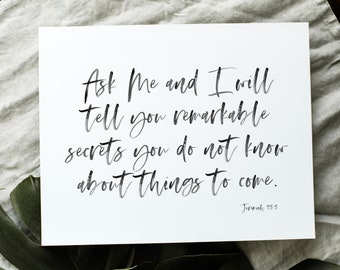 Ask Me and I will
tell you remarkable
secrets you do not know
about things to come.
Jeremiah 33:3